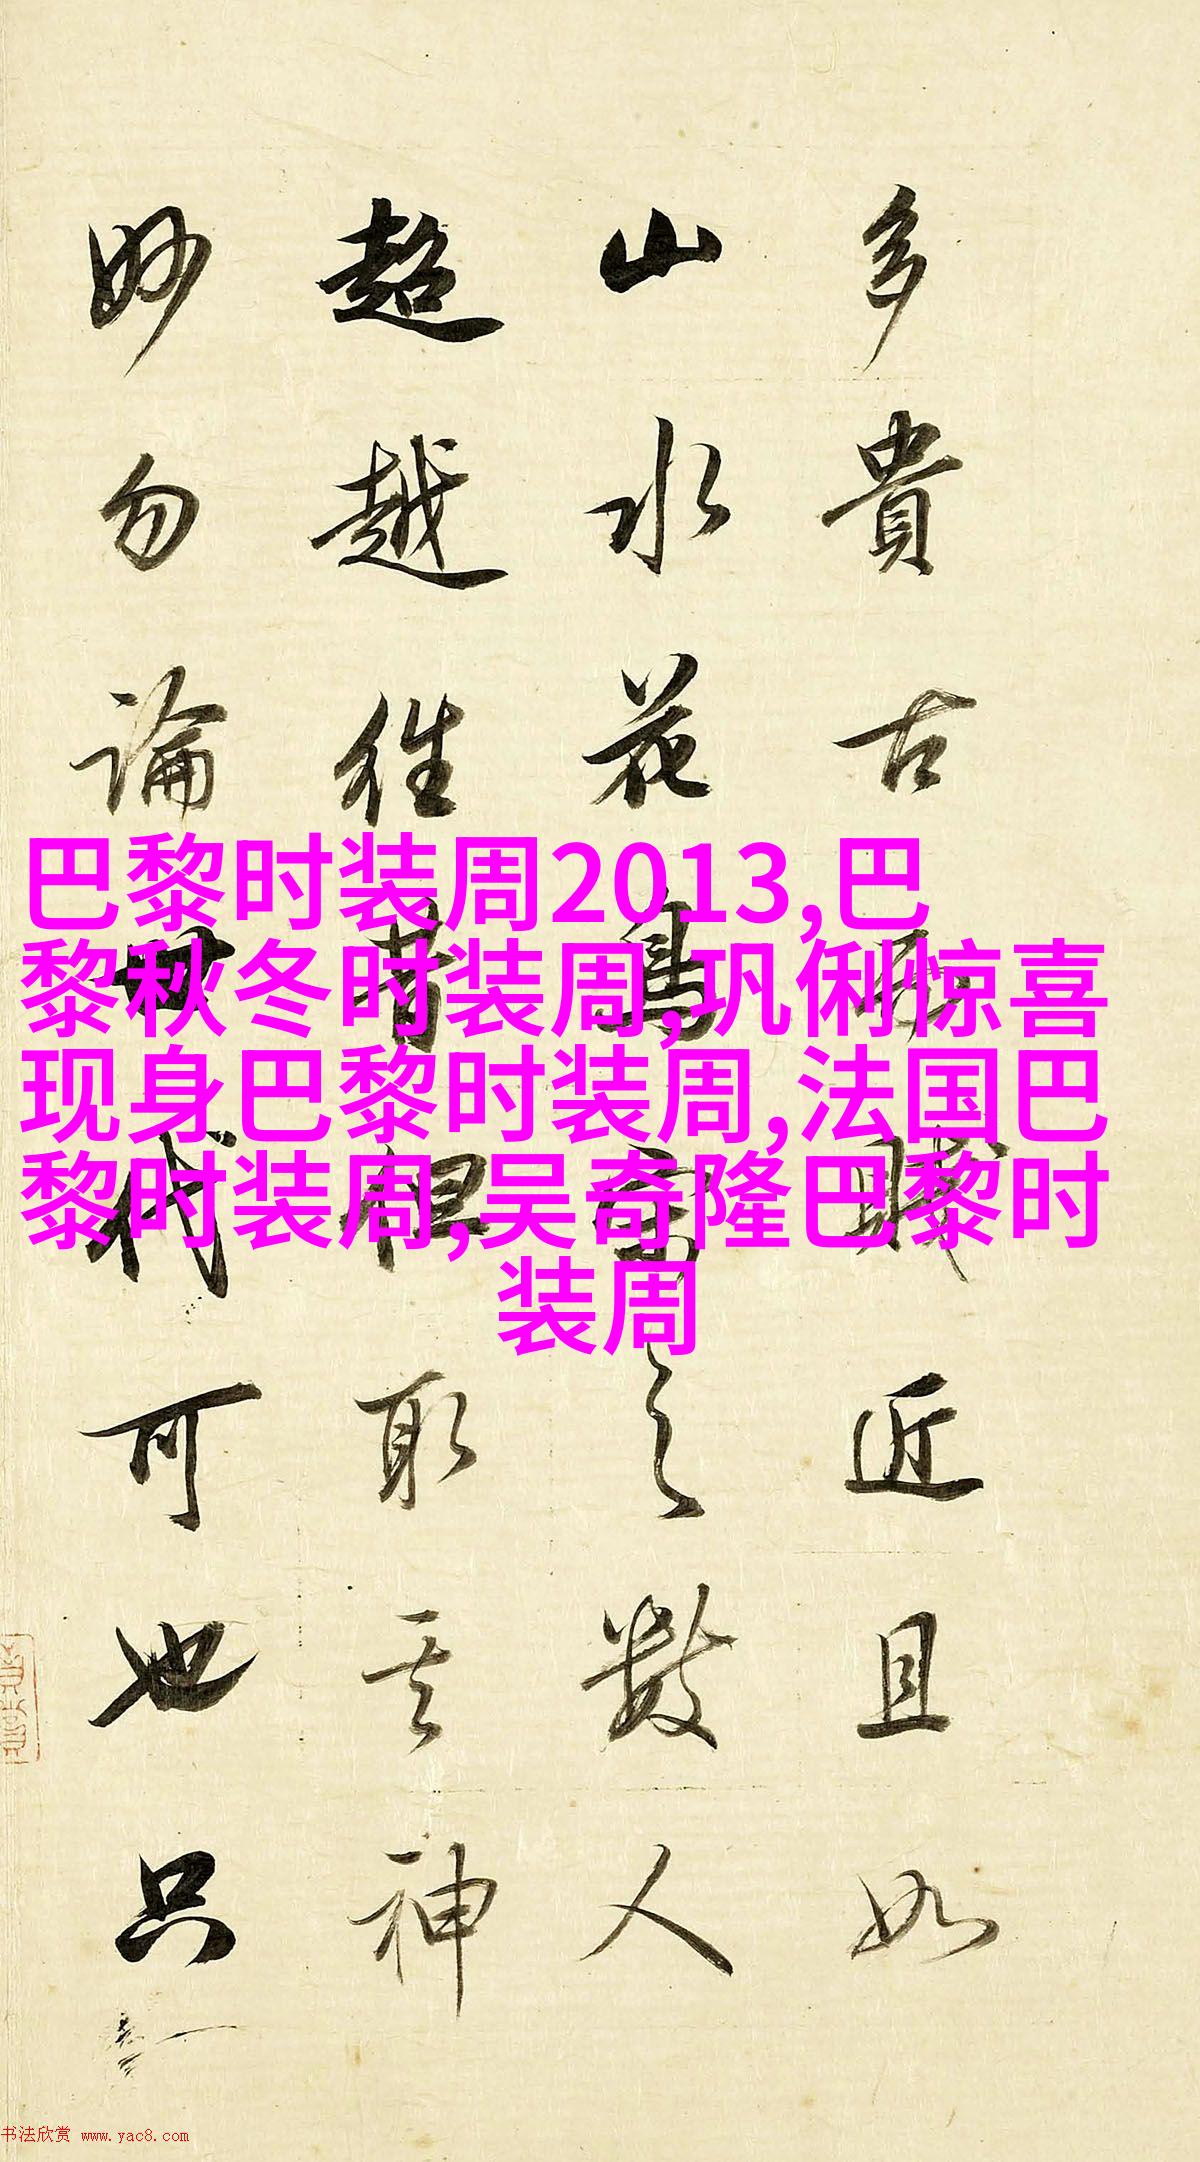 多貴古而賤近且如
山水花鳥之數人
超越往昔但取其神
妙勿論世代可也只
巴黎时装周2013,巴
黎秋冬时装周,巩俐惊喜
现身巴黎时装周,法国巴
黎时装周,吴奇隆巴黎时
装周
书法欣赏 www.yac8.com